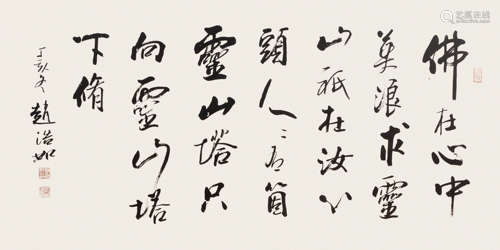 佛在心中
莫浪求靈
山祇在汝心
頭人人有箇
靈山塔只
向靈山塔
下脩
丁亥冬趙浩如